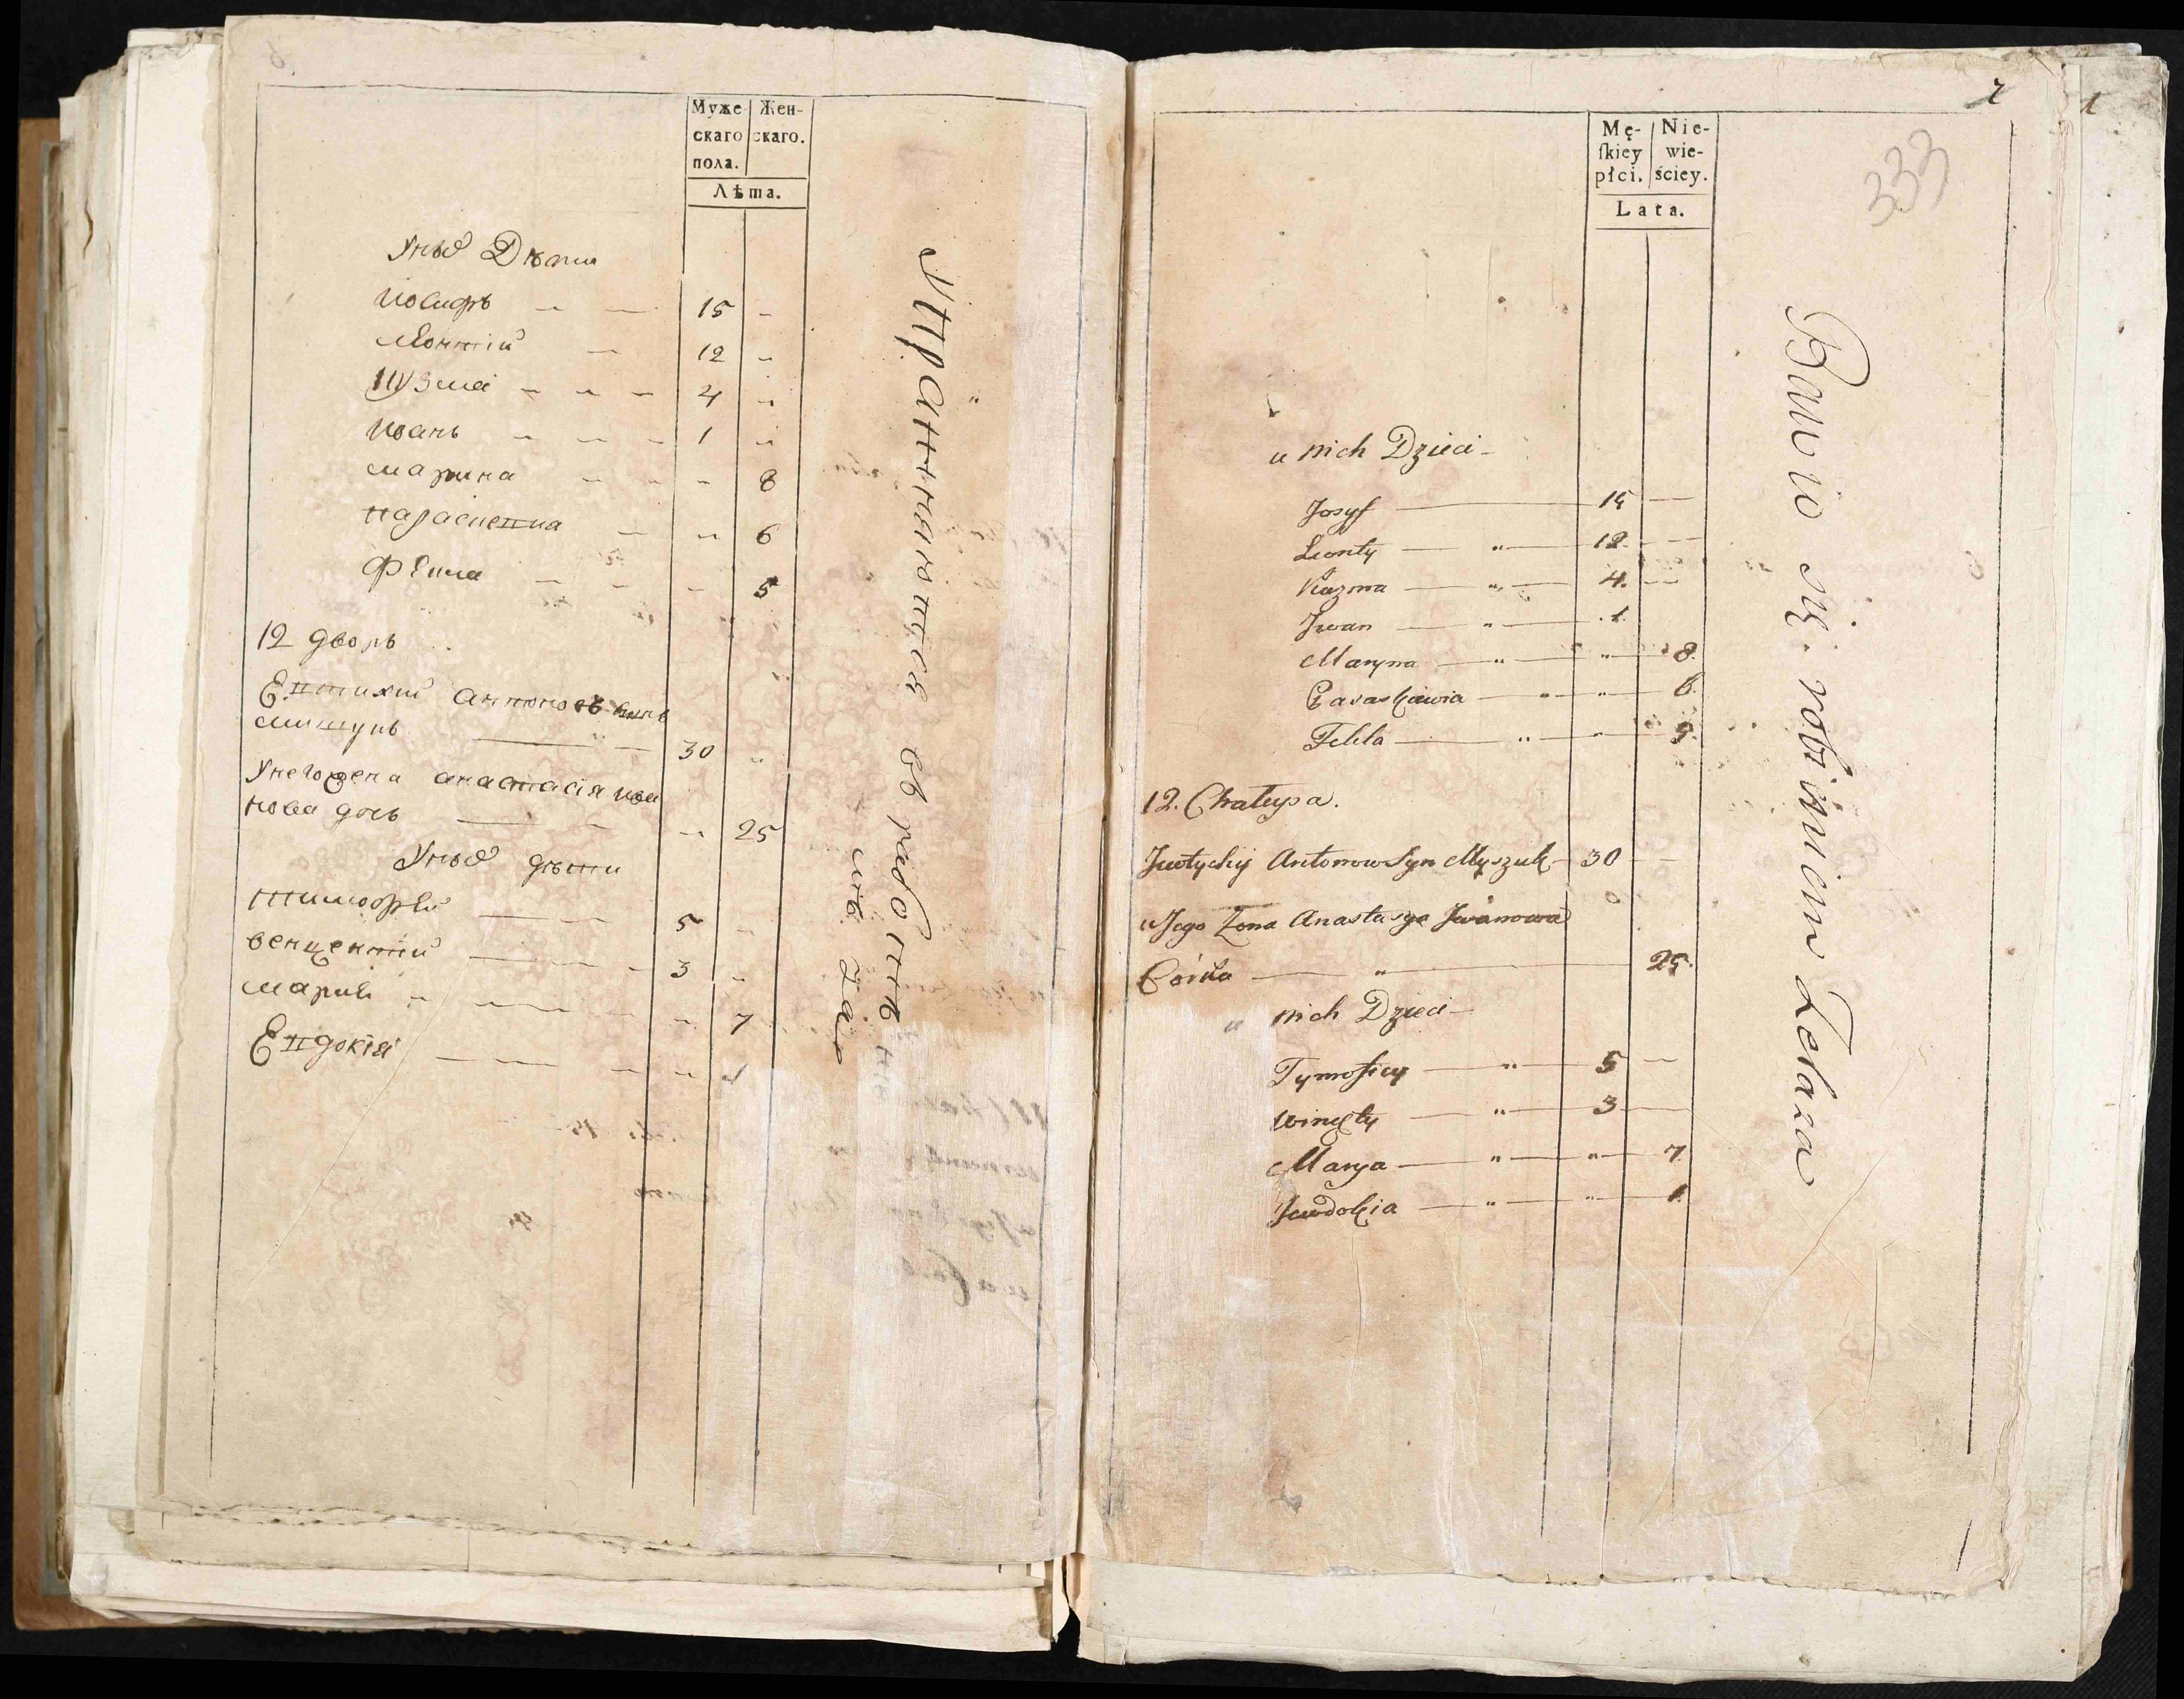 Муже- Жен-
скаго скаго.
пола.
Лѣта.
Унихъ Дѣти
Иосифъ 15
Леонтій 12
Кузма 4
Иванъ 1
Марина 8
Параскевиа 6
Фекла 5
12 дворъ
Евтихий Антоновъ сынъ
Мишукъ 30
Унего жена Анастасія Ива
нова дочь 25
Унихъ дѣти
Тимофѣй 5
Венцентий 3
Марія 7
Евдокія 1
Упражняются въ работѣ
7
1
333
Mę- Nie-
ſkiey wie-
płci. ściey.
Lata.
u nich Dzieci
Josyf 15
Leonty " 12
Kuzma " 4.
Jwan " 1.
Maryna " " 8.
Paraskiewia " " 6.
Tekla " " 5.
12. Chałupa.
Jwtychij Antonow Syn Myszuk 30
u Jego Zona Anastasya Jwanowa
Córka " 25.
u nich Dzieci
Tymofiey " 5
Wincęty " 3
Marya " " 7.
Jewdokia " " 1.
Bawio się robieniem Żelaza